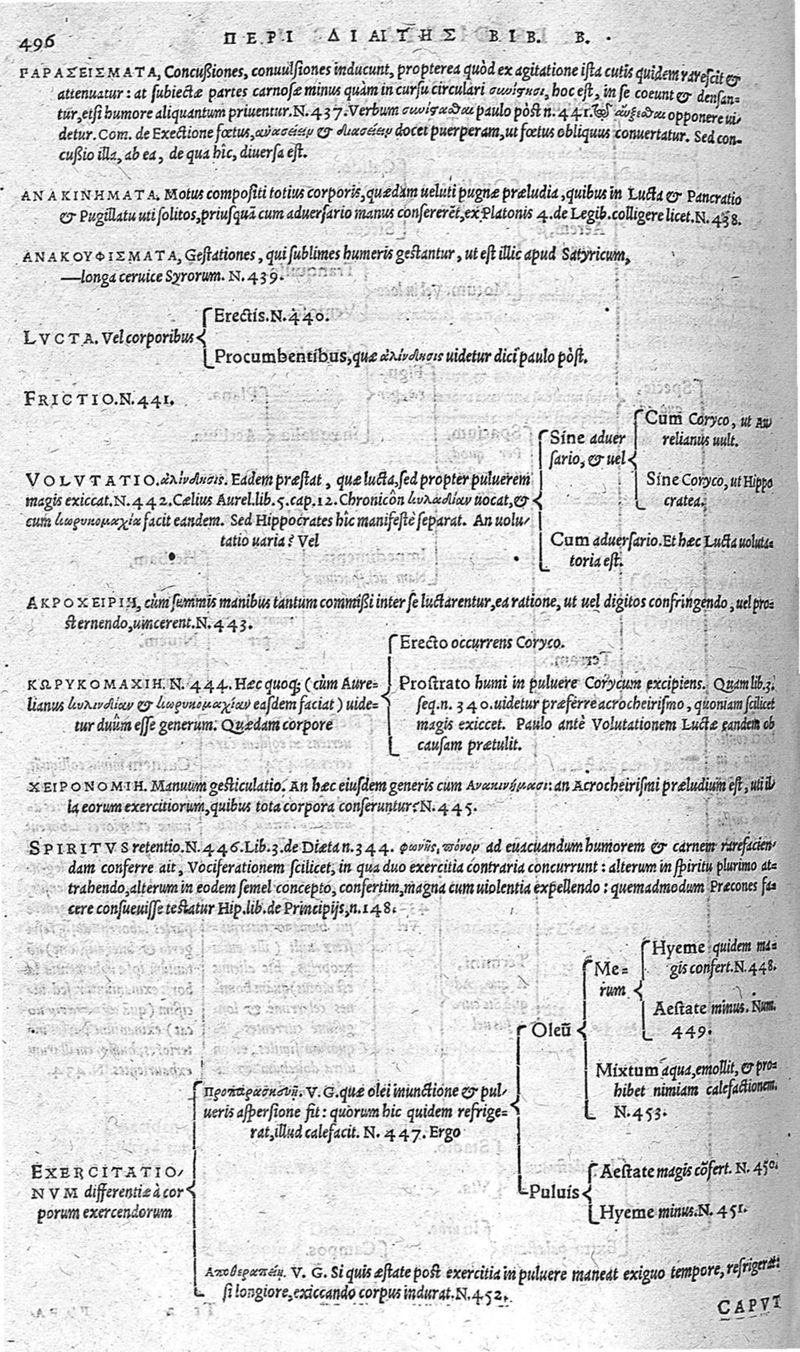 496
ΠΕΡΙ ΔΙΑΙΤΗΣ ΒΙΒ. Β.
ΠΑΡΑΣΕΙΣΜΑΤΑ, Concußiones, conuulsiones inducunt, propterea quòd ex agitatione ista cutis quidem rarescit &
attenuatur: at subiectæ partes carnosæ minus quàm in cursu circulari συνίζησι, hoc est, in se coeunt & densan-
tur, etsi humore aliquantum priuentur. N. 437. Verbum paulo pòst n. 441. opponere ui-
detur. Com. de Exectione fœtus, & docet puerperam, ut fœtus obliquus conuertatur. Sed con-
cußio illa, ab ea, de qua hic, diuersa est.
ΑΝΑΚΙΝΗΜΑΤΑ. Motus compositi totius corporis, quædam ueluti pugnæ præludia, quibus in Lucta & Pancratio
& Pugillatu uti solitos, priusquā cum aduersario manus consererēt, ex Platonis 4. de Legib. colligere licet. N. 438.
ΑΝΑΚΟΥΦΙΣΜΑΤΑ, Gestationes, qui sublimes humeris gestantur, ut est illic apud Satyricum,
—longa ceruice Syrorum. N. 439.
Erectis. N. 440.
LVCTA. Vel corporibus
Procumbentibus, quæ ἀλίνδησις uidetur dici paulo pòst.
FRICTIO. N. 441.
Cum Coryco, ut Au
Sine aduer relianus uult.
sario, & uel
VOLVTATIO. ἀλίνδησις. Eadem præstat, quæ lucta, sed propter puluerem Sine Coryco, ut Hippo
magis exiccat. N. 442. Cælius Aurel. lib. 5. cap. 12. Chronicôn uocat, & cratea.
cum κωρυκομαχία facit eandem. Sed Hippocrates hîc manifestè separat. An uolu-
tatio uaria? Vel Cum aduersario. Et hæc Lucta uoluta-
toria est.
ΑΚΡΟΧΕΙΡΙΗ, cùm summis manibus tantum commißi inter se luctarentur, ea ratione, ut uel digitos confringendo, uel pro-
sternendo, uincerent. N. 443.
Erecto occurrens Coryco.
ΚΩΡΥΚΟΜΑΧΙΗ. N. 444. Hæc quoq; (cùm Aure- Prostrato humi in puluere Corycum excipiens. Quam lib. 3.
lianus & κωρυκομαχίαν easdem faciat) uide- seq. n. 340. uidetur præferre acrocheirismo, quoniam scilicet
tur duûm esse generum. Quædam corpore magis exiccet. Paulo antè Volutationem Luctæ eandem ob
causam prætulit.
ΧΕΙΡΟΝΟΜΙΗ. Manuum gesticulatio. An hæc eiusdem generis cum Ανακινήμασι: an Acrocheirismi præludium est, uti il
la eorum exercitiorum, quibus tota corpora conseruntur? N. 445.
SPIRITVS retentio. N. 446. Lib. 3. de Diæta n. 344. φωνῆς πόνον ad euacuandum humorem & carnem rarefacien-
dam conferre ait, Vociferationem scilicet, in qua duo exercitia contraria concurrunt: alterum in spiritu plurimo at-
trahendo, alterum in eodem semel concepto, confertim, magna cum uiolentia expellendo: quemadmodum Præcones fa-
cere consueuisse testatur Hip. lib. de Principijs, n. 148.
Hyeme quidem ma-
Me- gis confert. N. 448.
rum
Aestate minus. Num.
Oleū 449.
Mixtum aqua, emollit, & pro-
Προπαρασκευή. V. G. quæ olei inunctione & pul- hibet nimiam calefactionem.
ueris aspersione fit: quorum hic quidem refrige- N. 453.
rat, illud calefacit. N. 447. Ergo
EXERCITATIO- Aestate magis cōfert. N. 450.
NVM differentiæ à cor Puluis
porum exercendorum Hyeme minus. N. 451.
Αποθεραπείη. V. G. Si quis æstate post exercitia in puluere maneat exiguo tempore, refrigerat:
si longiore, exiccando corpus indurat. N. 452.
CAPVT